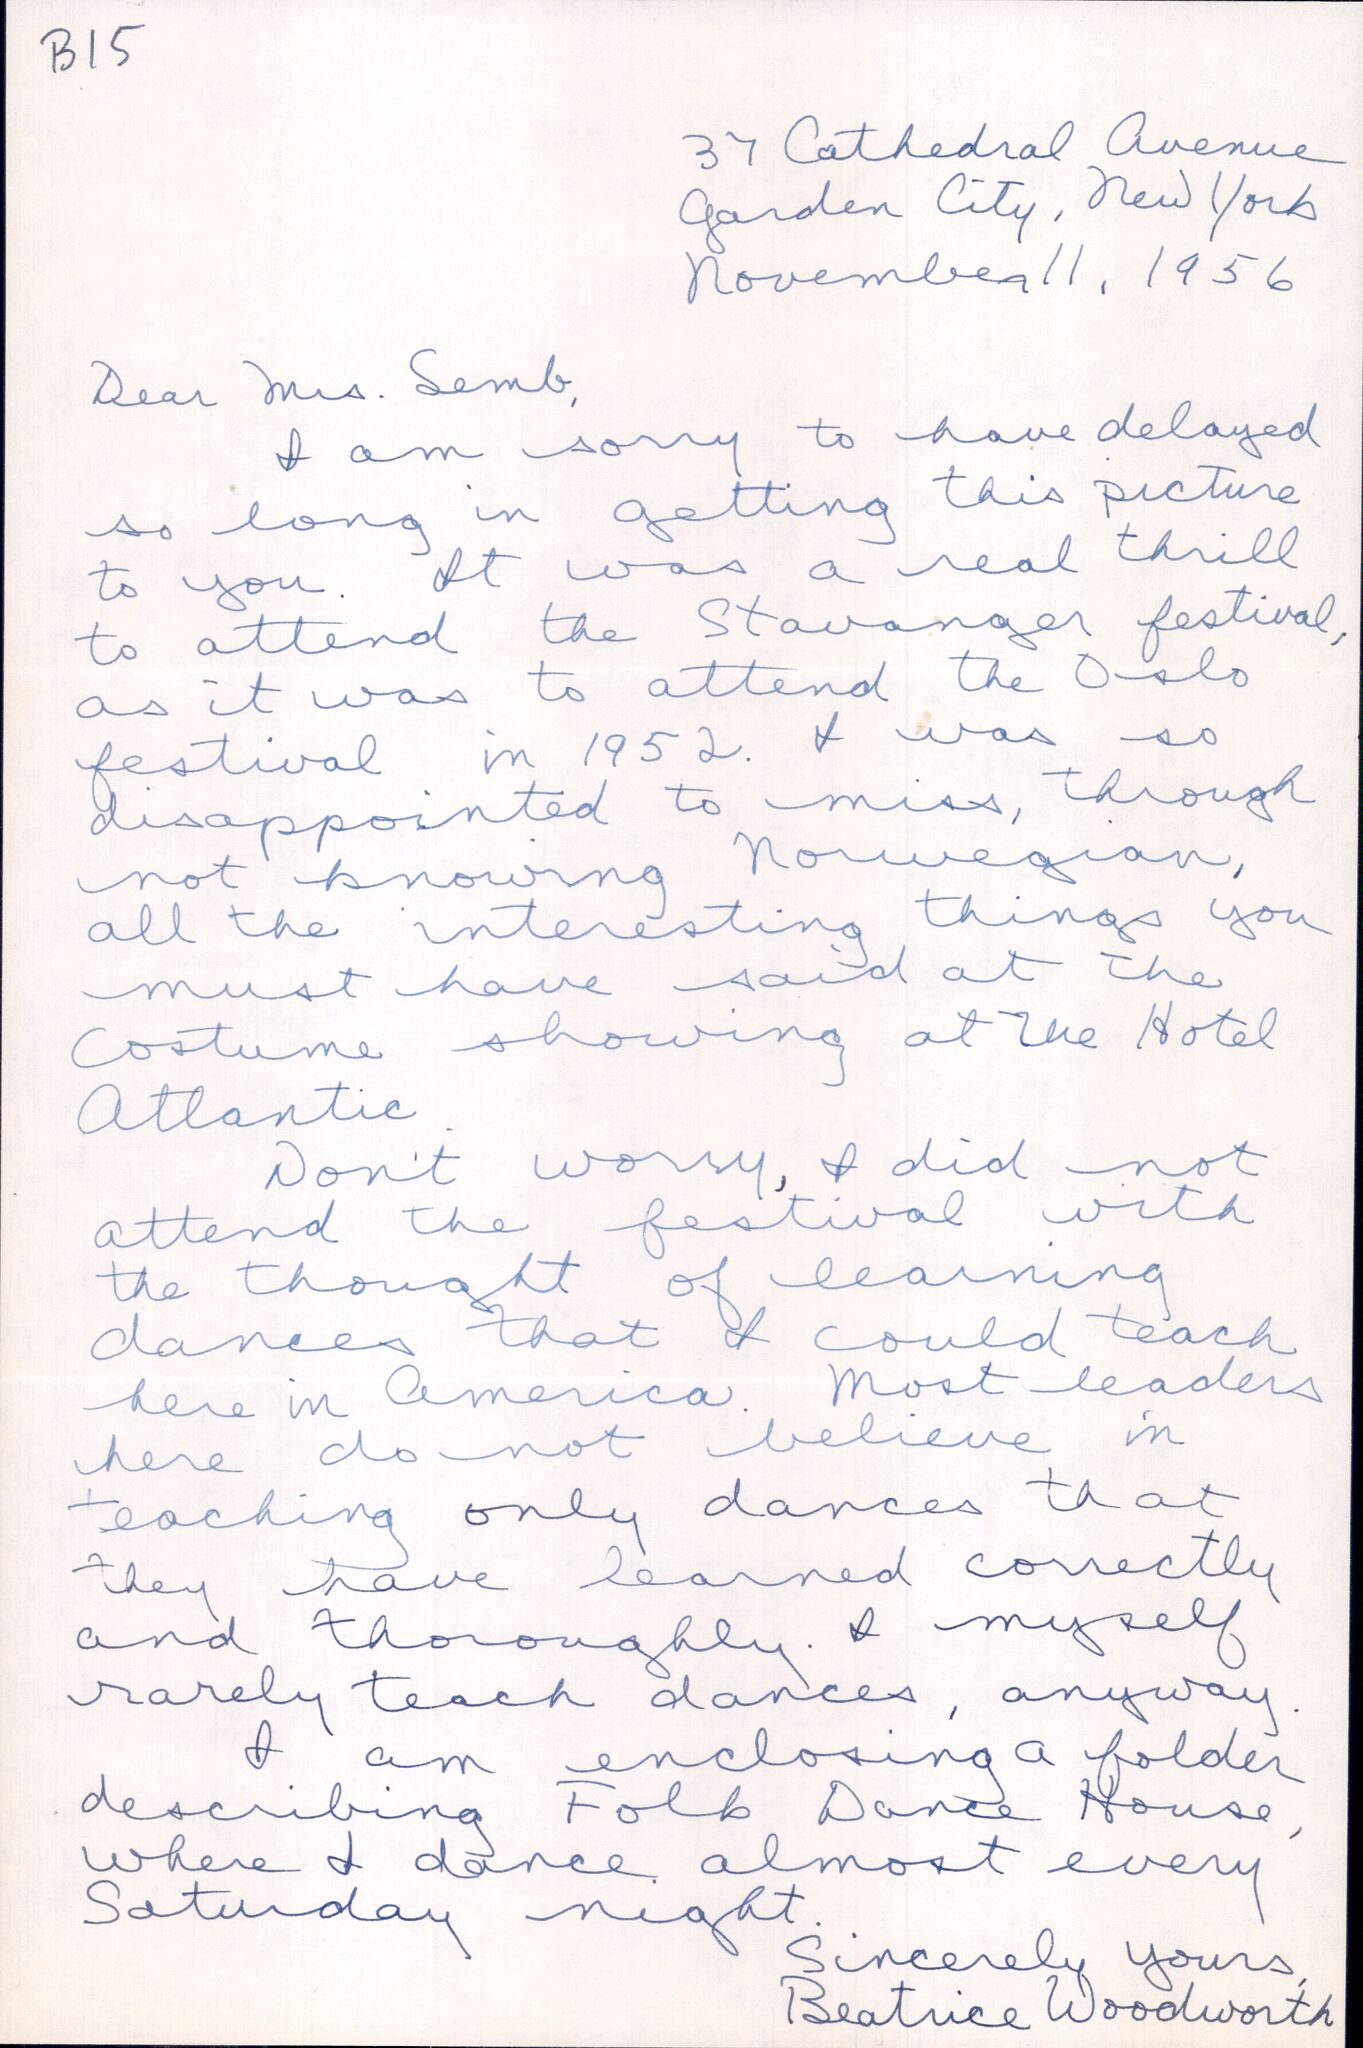 B15
37 Cathedral Avenue
Garden City, New York
November 11, 1956
Dear Mrs. Semb,
I am sorry to have delayed
so long in getting this picture
to you. It was a real thrill
to attend the Stavanger festival,
as it was to attend the Oslo
festival in 1952. I was so
disappointed to miss, through
not knowing Norwegian,
all the interesting things you
must have said at the
costume showing at the Hotel
Atlantic.
Don't worry, I did not
attend the festival with
the thought of learning
dances that I could teach
here in America. Most leaders
here do not believe in
teaching only dances that
they have learned correctly
and thoroughly. I myself
rarely teach dances, anyway.
I am enclosing a folder
describing Folk Dance House,
where I dance almost every
Saturday night.
Sincerely yours,
Beatrice Woodworth